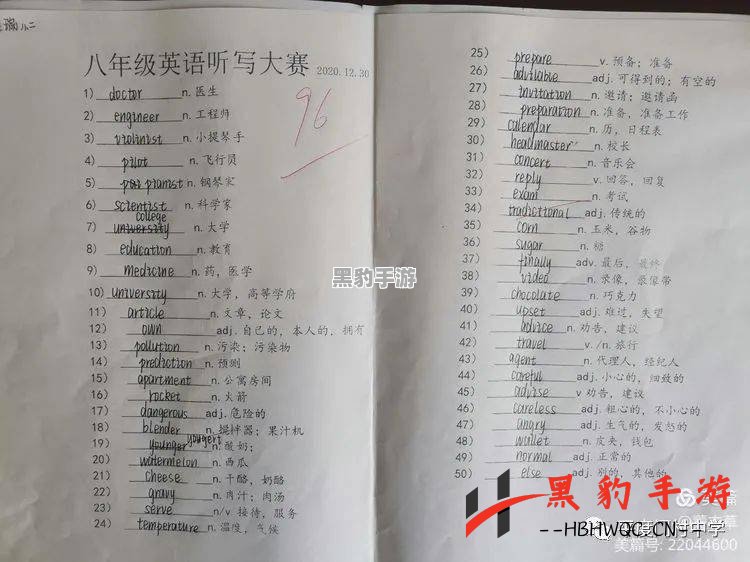 小二
八年级英语听写大赛 2020.12.30
96
1) doctor n. 医生
2) engineer n. 工程师
3) violinist n. 小提琴手
4) pilot n. 飞行员
5) pianist n. 钢琴家
6) scientist n. 科学家
college
7) university n. 大学
8) education n. 教育
9) medicine n. 药，医学
10) university n. 大学，高等学府
11) article n. 文章，论文
12) own adj. 自己的，本人的，拥有
13) pollution n. 污染；污染物
14) prediction n. 预测
15) apartment n. 公寓房间
16) rocket n. 火箭
17) dangerous adj. 危险的
18) blender n. 搅拌器；果汁机
yougert
19) younger n. 酸奶；
20) watermelon n. 西瓜
21) cheese n. 干酪，奶酪
22) gravy n. 肉汁；肉汤
23) serve n/v 接待，服务
24) temperature n. 温度，气候
25) prepare v. 预备；准备
26) available adj. 可得到的；有空的
27) invitation n. 邀请；邀请函
28) preparation n. 准备，准备工作
29) calendar n. 历，日程表
30) headmaster n. 校长
31) concert n. 音乐会
32) reply v. 回答，回复
33) exam n. 考试
34) tradictional adj. 传统的
35) corn n. 玉米，谷物
36) sugar n. 糖
37) finally adv. 最后，最终
38) video n. 录像，录像带
39) chocolate n. 巧克力
40) upset adj. 难过，失望
41) advice n. 劝告，建议
42) travel v. /n. 旅行
43) agent n. 代理人，经纪人
44) careful adj. 小心的，细致的
45) advise v 劝告，建议
46) careless adj. 粗心的，不小心的
47) angry adj. 生气的，发怒的
48) wallet n. 皮夹，钱包
49) normal adj. 正常的
50) else adj. 别的，其他的
黑豹手游
黑豹手游
--HBHWQC.CN
中学
美篇号: 22044600